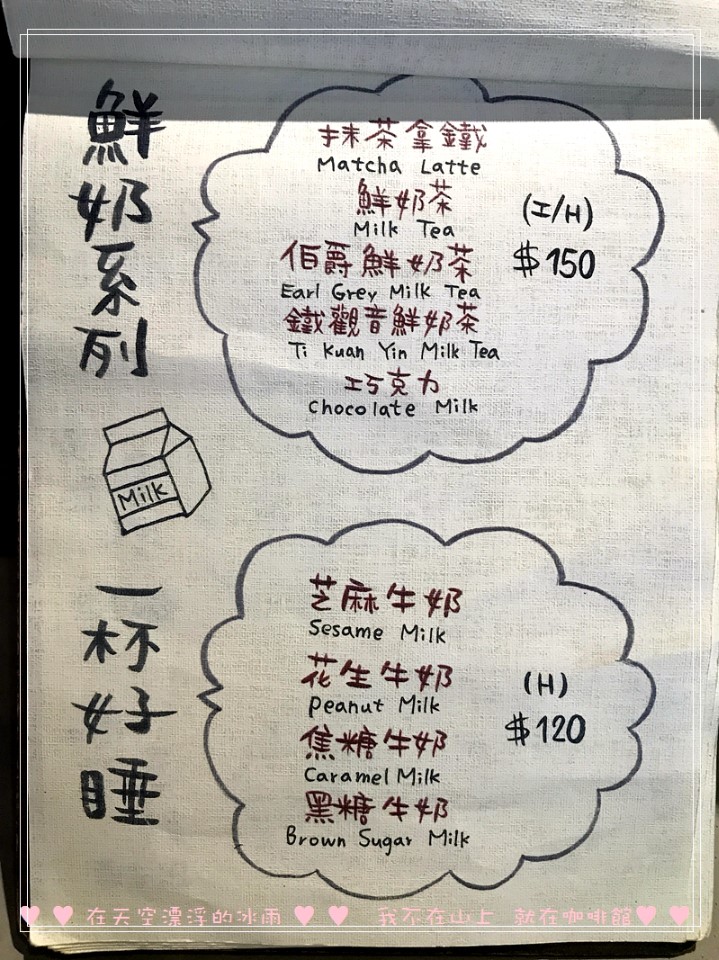 鮮奶系列
抹茶拿鐵
Matcha Latte
鮮奶茶
Milk Tea
伯爵鮮奶茶
Earl Grey Milk Tea
鐵觀音鮮奶茶
Ti Kuan Yin Milk Tea
巧克力
Chocolate Milk
(I/H)
$150
Milk
一杯好睡
芝麻牛奶
Sesame Milk
花生牛奶
Peanut Milk
焦糖牛奶
Caramel Milk
黑糖牛奶
Brown Sugar Milk
(H)
$120
♥ ♥ 在天空漂浮的冰雨 ♥ ♥ 我不在山上 就在咖啡館♥ ♥